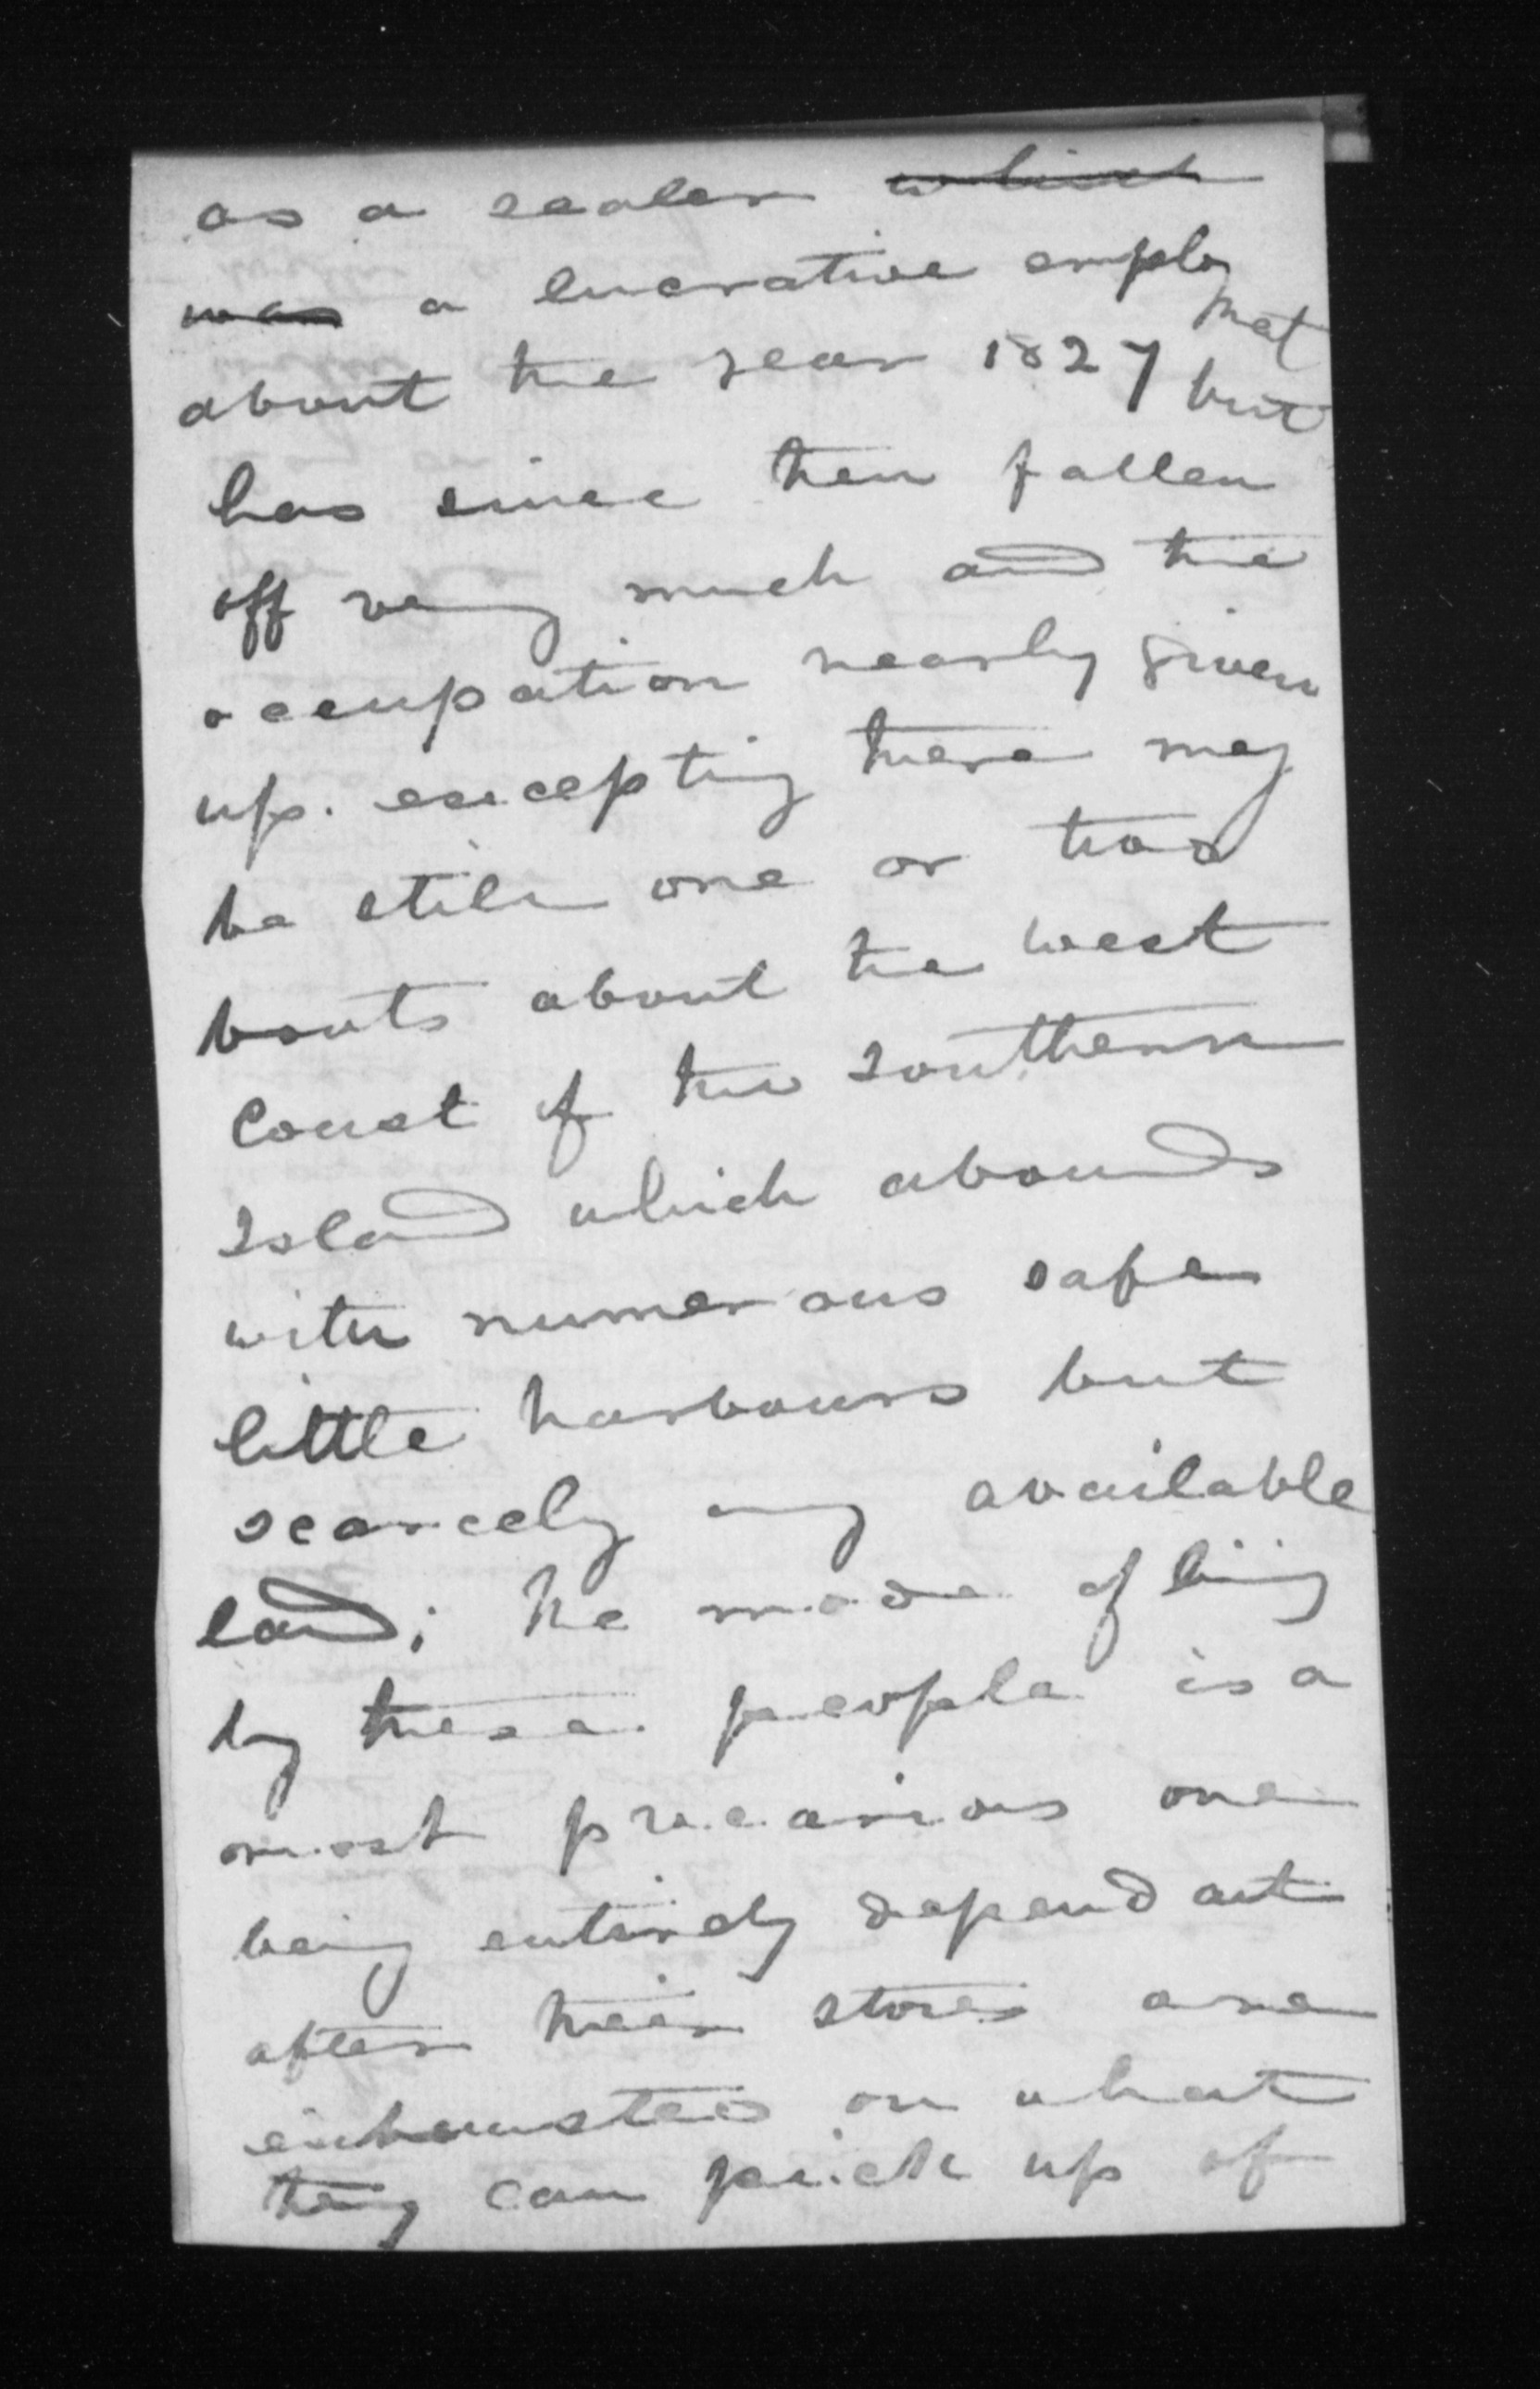 as a sealer which
was a lucrative employ
met
about the year 1827 but
has since then fallen
off very much and the
occupation nearly given
up. excepting there may
be still one or two
boats about the west
Coast of the Southern
Island which abounds
with numerous safe
little harbours but
scarcely any available
land; the mode of living
by these people is a
most precarious one
being entirely dependant
after their stores are
exhausted on what
they can pick up of